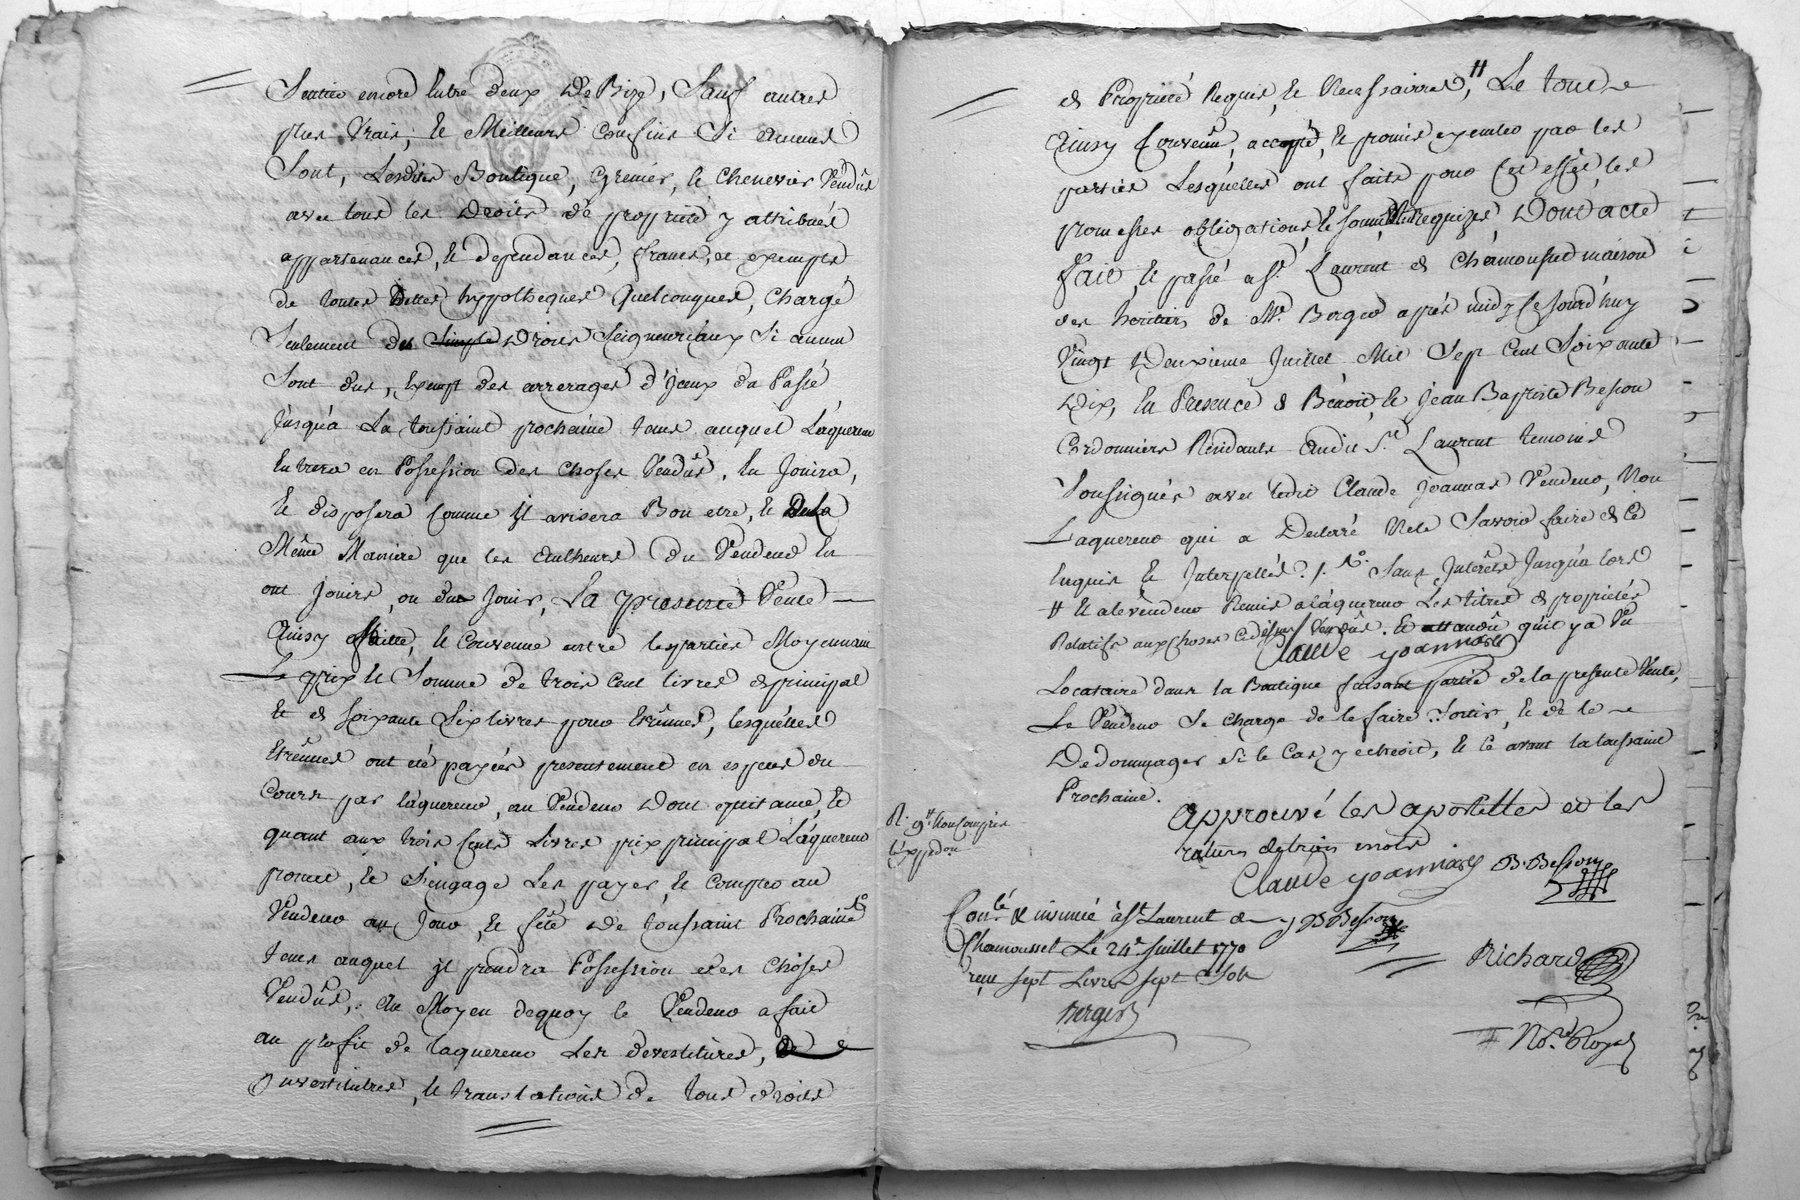 Sentier encore entre deux De Bize, Sauf autres
plus Vrais, et Meilleurs confins Si aucuns
Sont, Lesdits Boutique, Grenier, et chenevier Vendus
avec tous les Droits de proprieté y attribués
appartenances, et dependances, francs, et exempts
de toutes Dettes hypotheques Quelconques, Chargé
Seulement des Simple Droits Seigneuriaux Si aucun
Sont dus, Exempt des arrerages d'jceux du Passé
jusqu'a La toussaint prochaine tems auquel L'aquereur
Entrera en Possession des choses Vendües, En Jouira,
Et disposera Comme jl avisera Bon etre, et De la
Même Maniere que les autheurs du Vendeur En
ont jouis, ou du Jouir, La presente Vente
Ainsy faitte, et Convenue entre les parties Moyennant
Le prix et Somme de trois Cent livres de principal
Et de soixante Six livres pour Etrennes, lesquelles
Etrennes ont été payées presentement en especes du
Cours par l'aquereur, au Vendeur Dont quitance, et
quant aux trois Cents Livres prix principal L'aquereur
promet, et S'engage Les payer, et Compter au
Vendeur au Jour, et fête De toussaint Prochaine
tems auquel jl prendra Possession des Choses
Vendües, Au Moyen dequoy le Vendeur a fait
au profit de l'aquereur Les devestitures,
investitures, et translations de tous droits
de Proprieté Requis, et Necessaires, # Le tout
Ainsy Convenu, accepté, et promis executer par les
parties Lesquelles ont faits pour Cet effet, les
promesses obligations, et soumissions requizes, Dont acte
Fait, et passé a St. Laurent de Chamousset maison
des heritiers de Me. Berger après midy ce Jourd'huy
Vingt Deuxieme Juillet Mil Sept Cent Soixante
Dix, En Presence de Benoit, et Jean Baptiste Besson
Cordonniers Residants audit St. Laurent temoins
Soussignés avec ledit Claude Joannas Vendeur, Non
L'aquereur qui a Declaré Ne le Savoir faire de Ce
Enquis et Interpellés. /. Sans Interêts Jusqu'a lors
# Et a le vendeur Remis a l'aquereur Les titres de proprietés
Relatifs aux choses Cedessus Vendües. Et attandu qu'il y a Un
Claude yoannas
Locataire dans la Boutique faisant partie de la presente Vente,
Le Vendeur Se charge de le faire Sortir, et de le
Dedommager Si le Cas y echeoit, et Ce avant la toussaint
Prochaine.
Approuvé les apostilles et les
ratures de trois mots
R. 9# Non Compris
l'expedon.
Claude yoannas B. Besson
Conlé & insinué à St. Laurent de
Chamousset Le 24e. Juillet 1770
reçu sept Livres sept Sols
Berger
J B Besson
Richard
No.re Royal